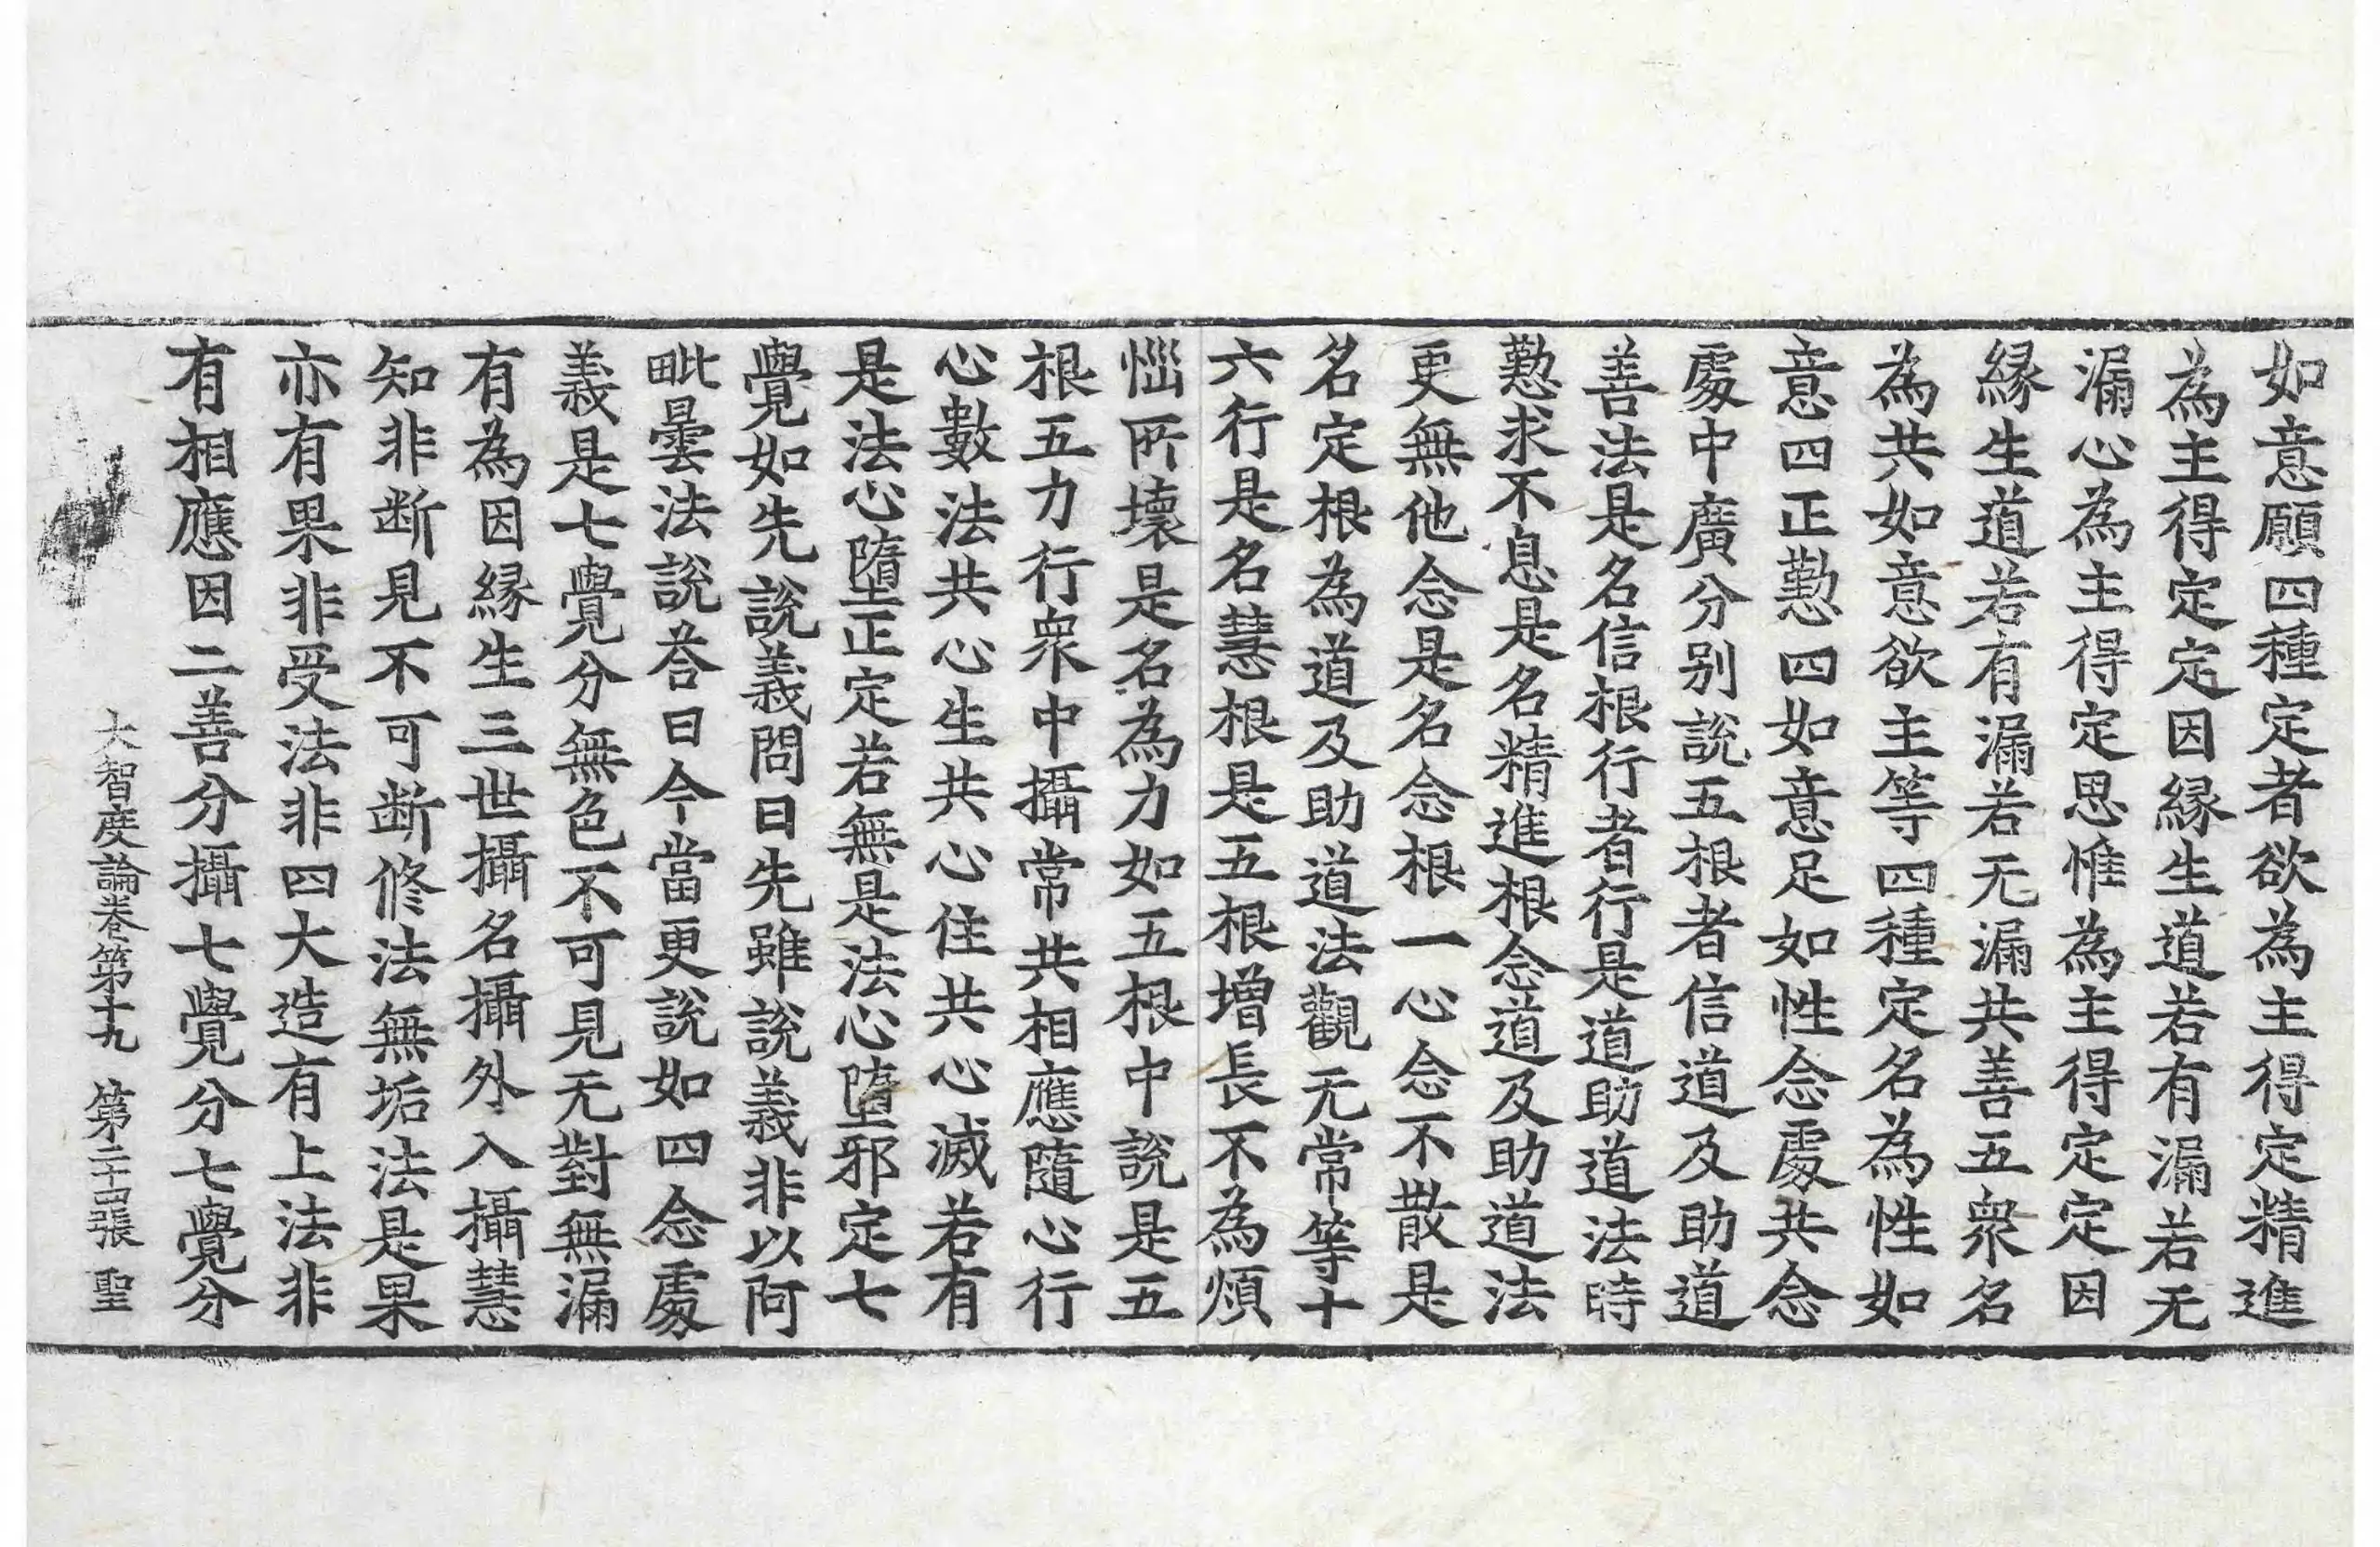 如意願四種定者欲為主得定精進
為主得定定因緣生道若有漏若无
漏心為主得定思惟為主得定定因
緣生道若有漏若无漏共善五眾名
為共如意欲主等四種定名為性如
意四正懃四如意足如性念處共念
處中廣分別說五根者信道及助道
善法是名信根行者行是道助道法時
懃求不息是名精進根念道及助道法
更無他念是名念根一心念不散是
名定根為道及助道法觀无常等十
六行是名慧根是五根增長不為煩
惱所壞是名為力如五根中說是五
根五力行眾中攝常共相應隨心行
心數法共心生共心住共心滅若有
是法心墮正定若無是法心墮邪定七
覺如先說義問曰先雖說義非以阿
毗曇法說荅曰今當更說如四念處
義是七覺分無色不可見无對無漏
有為因緣生三世攝名攝外入攝慧
知非斷見不可斷修法無垢法是果
亦有果非受法非四大造有上法非
有相應因二善分攝七覺分七覺分
大智度論卷第十九 第二十四張 聖